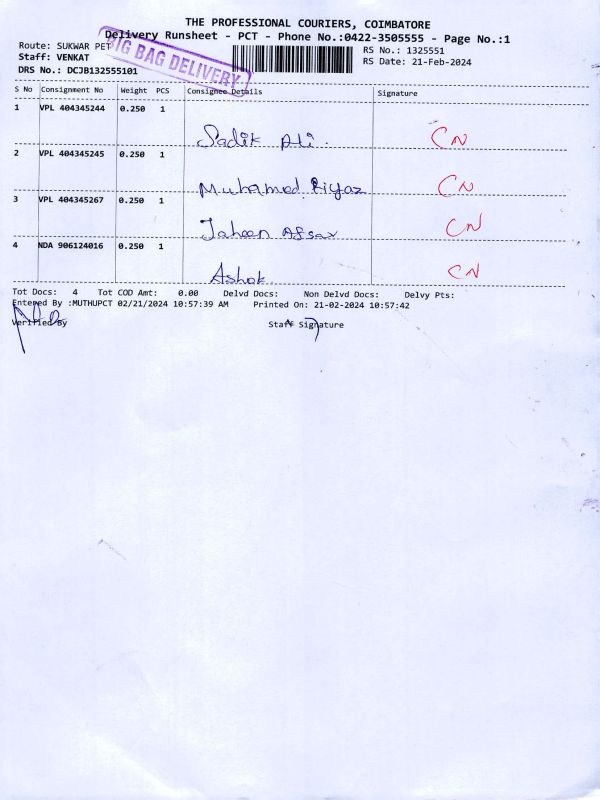 THE PROFESSIONAL COURIERS, COIMBATORE
Delivery Runsheet - PCT - Phone No.:0422-3505555 - Page No.:1
Route: SUKWAR PET
BIG BAG DELIVERY
RS No.: 1325551
Staff: VENKAT
RS Date: 21-Feb-2024
DRS No.: DCJB132555101
S No Consignment No Weight PCS Consignee Details Signature
1 VPL 404345244 0.250 1
Sadik Ali. CN
2 VPL 404345245 0.250 1
Muhamed Riyaz CN
3 VPL 404345267 0.250 1
Jaheen Afsar CN
4 NDA 906124016 0.250 1
Ashok CN
Tot Docs: 4 Tot COD Amt: 0.00 Delvd Docs: Non Delvd Docs: Delvy Pts:
Entered By :MUTHUPCT 02/21/2024 10:57:39 AM Printed On: 21-02-2024 10:57:42
Verified By Staff Signature